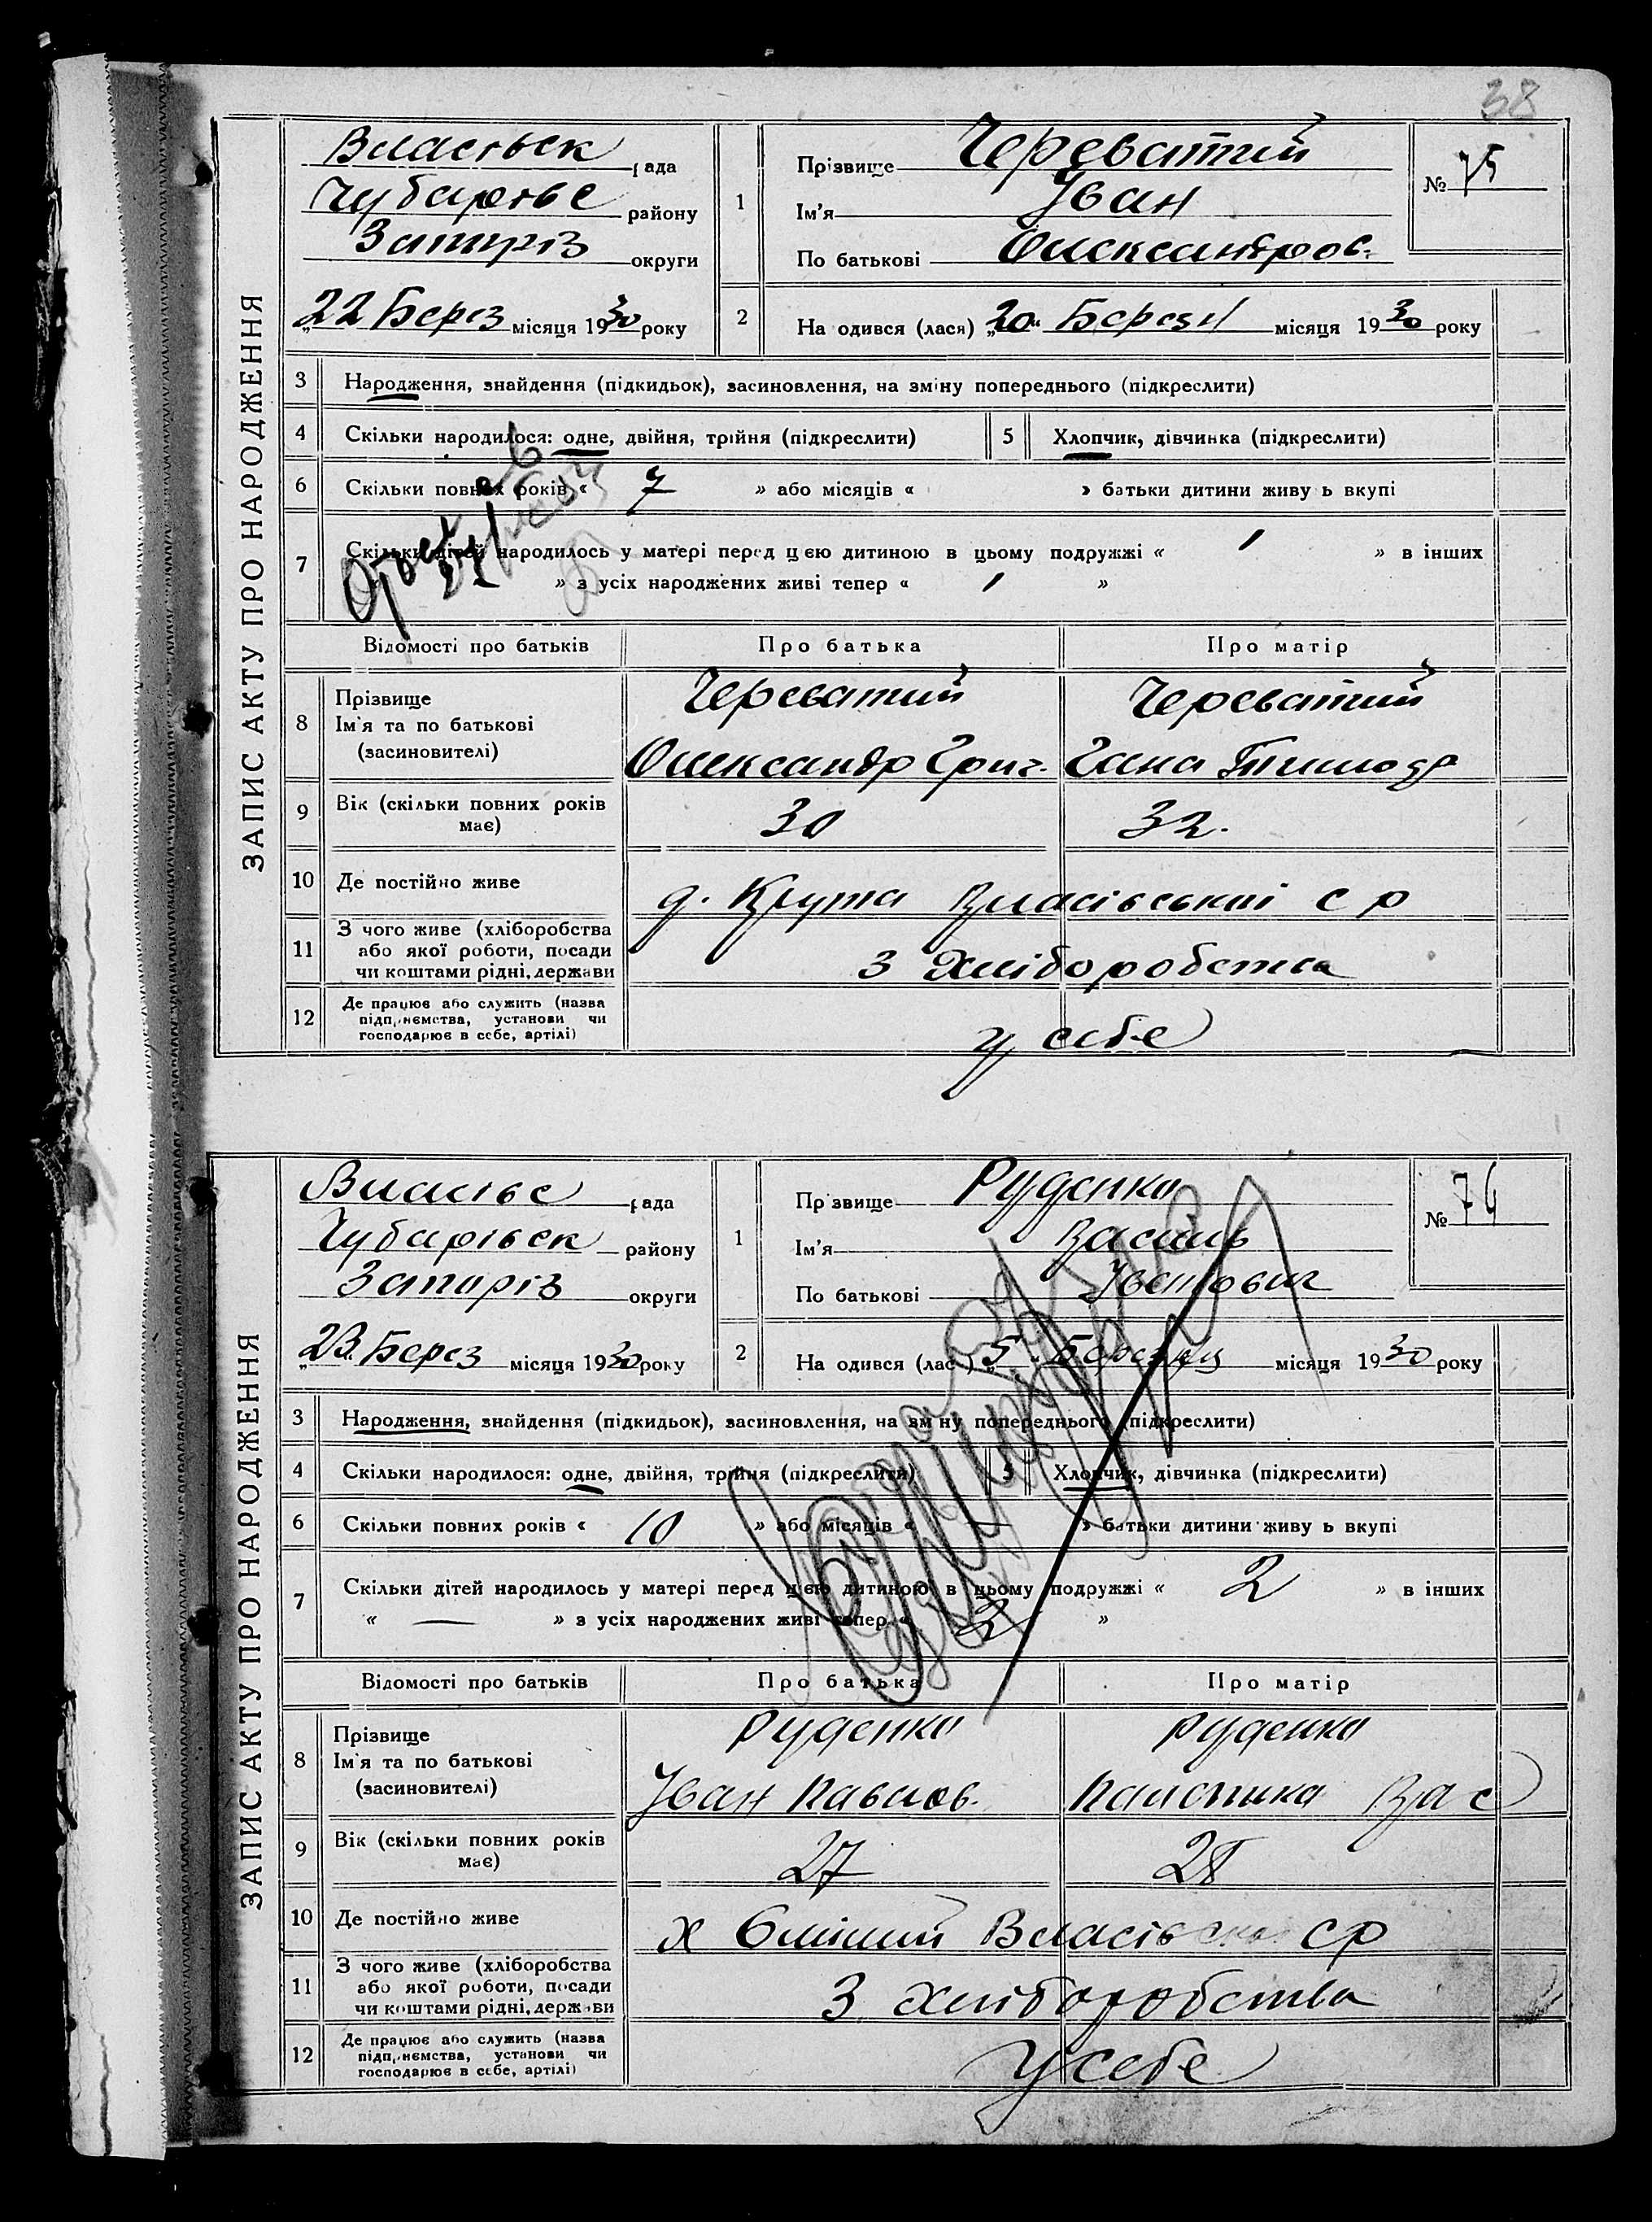 38
ЗАПИС АКТУ ПРО НАРОДЖЕННЯ
Власівськ рада
Чубарівс району
Запоріз округи
„22 Берез місяця 1930 року
1 Прізвище Череватий
Ім'я Іван
По батькові Олександров.
№ 75
2 На одився (лася) „20“ Березн місяця 1930 року
3 Народження, знайдення (підкидьок), засиновлення, на зміну попереднього (підкреслити)
4 Скільки народилося: одне, двійня, трійня (підкреслити)
5 Хлопчик, дівчинка (підкреслити)
6 Скільки повних років « 7 » або місяців « » батьки дитини живу ь вкупі
7 Скільки дітей народилось у матері перед цією дитиною в цьому подружжі « 1 » в інших
» з усіх народжених живі тепер « 1 »
Відомості про батьків Про батька Про матір
8 Прізвище
Ім'я та по батькові
(засиновителі)
Череватий Череватий
Олександр Григ. Гана Тимоф
9 Вік (скільки повних років має) 30 32.
10 Де постійно живе Власівської с р
11 З чого живе (хліборобства
або якої роботи, посади
чи коштами рідні, держави
З Хліборобства
12 Де працює або служить (назва
підпрнємства, установи чи
господарює в себе, артілі)
у себе
ЗАПИС АКТУ ПРО НАРОДЖЕННЯ
Власівс рада
Чубарівськ району
Запоріз округи
„23 Берез місяця 1930 року
1 Пр звище Руденко
Ім'я Василь
По батькові Іванович
№ 76
2 На одився (лас ) „5 Березня місяця 1930 року
3 Народження, знайдення (підкидьок), засиновлення, на зміну попереднього (підкреслити)
4 Скільки народилося: одне, двійня, трійня (підкреслити)
5 Хлопчик, дівчинка (підкреслити)
6 Скільки повних років « 10 » або місяців « — » батьки дитини живу ь вкупі
7 Скільки дітей народилось у матері перед цією дитиною в цьому подружжі « 2 » в інших
« — » з усіх народжених живі тепер « 2 »
Відомості про батьків Про батька Про матір
8 Прізвище
Ім'я та по батькові
(засиновителі)
Руденко Руденко
Іван Павлов. Вас
9 Вік (скільки повних років має) 27 28
10 Де постійно живе х Власівс ср
11 З чого живе (хліборобства
або якої роботи, посади
чи коштами рідні, держави
З Хліборобства
12 Де працює або служить (назва
підпрнємства, установи чи
господарює в себе, артілі)
У себе